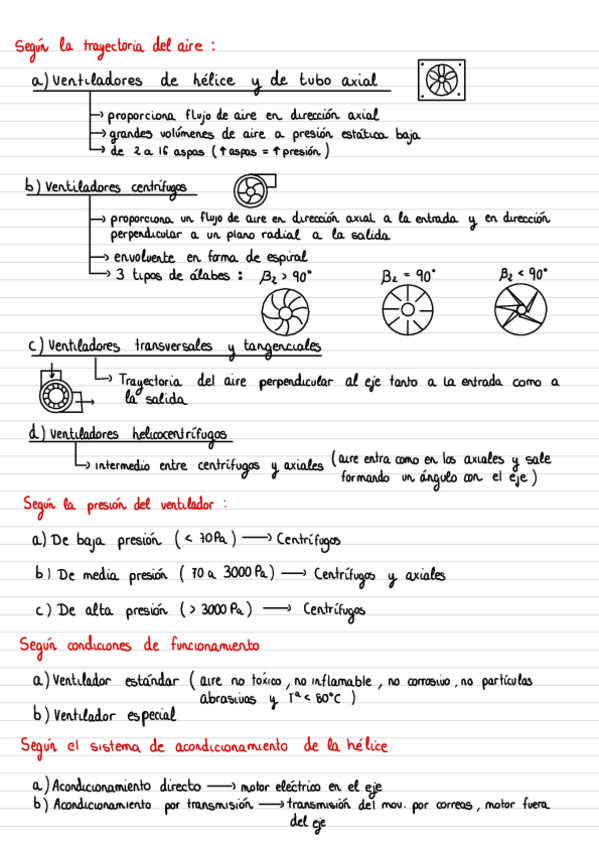 Según la trayectoria del aire :
a) Ventiladores de hélice y de tubo axial
→ proporciona flujo de aire en dirección axial
→ grandes volúmenes de aire a presión estática baja
→ de 2 a 16 aspas (↑aspas = ↑presión)
b) Ventiladores centrífugos
→ proporciona un flujo de aire en dirección axial a la entrada y en dirección
perpendicular a un plano radial a la salida
→ envolvente en forma de espiral
→ 3 tipos de álabes : β₂ > 90° β₂ = 90° β₂ < 90°
c) Ventiladores transversales y tangenciales
→ Trayectoria del aire perpendicular al eje tanto a la entrada como a
la salida
d) Ventiladores helicocentrífugos
→ intermedio entre centrífugos y axiales (aire entra como en los axiales y sale
formando un ángulo con el eje)
Según la presión del ventilador :
a) De baja presión (< 70 Pa) → Centrífugos
b) De media presión (70 a 3000 Pa) → Centrífugos y axiales
c) De alta presión (> 3000 Pa) → Centrífugos
Según condiciones de funcionamiento
a) Ventilador estándar (aire no tóxico, no inflamable, no corrosivo, no partículas
abrasivas y Tª < 80°C)
b) Ventilador especial
Según el sistema de acondicionamiento de la hélice
a) Acondicionamiento directo → motor eléctrico en el eje
b) Acondicionamiento por transmisión → transmisión del mov. por correas, motor fuera
del eje